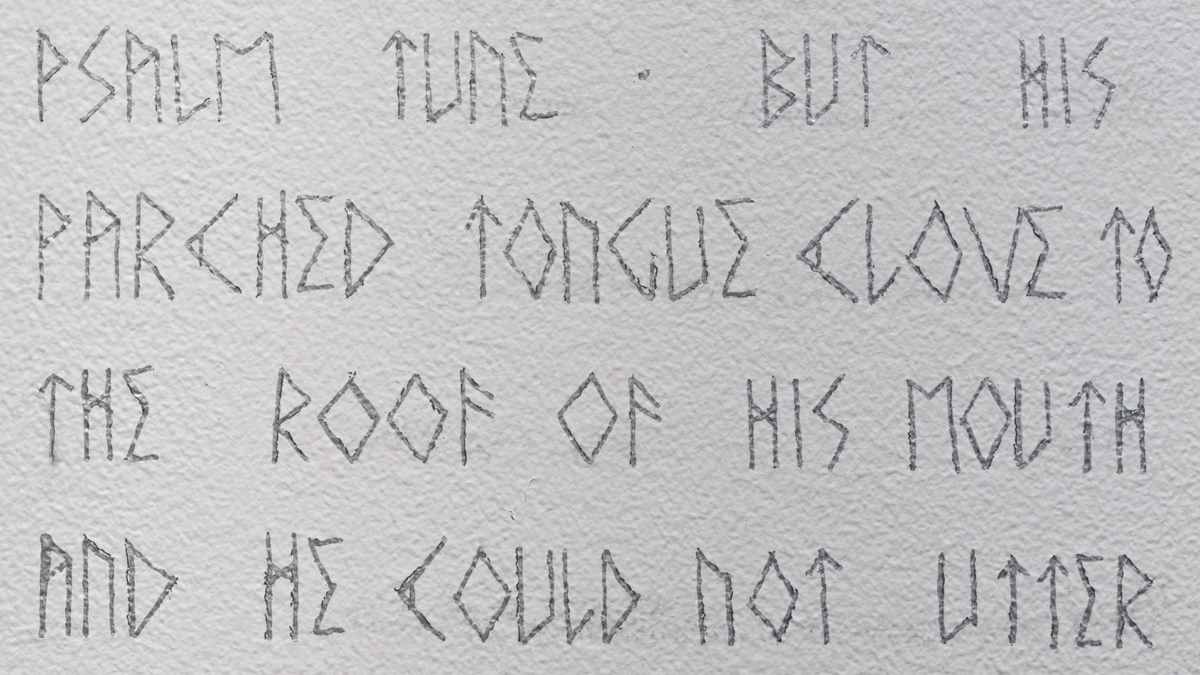 PSALM TUNE . BUT HIS
PARCHED TONGUE CLOVE TO
THE ROOF OF HIS MOUTH
AND HE COULD NOT UTTER